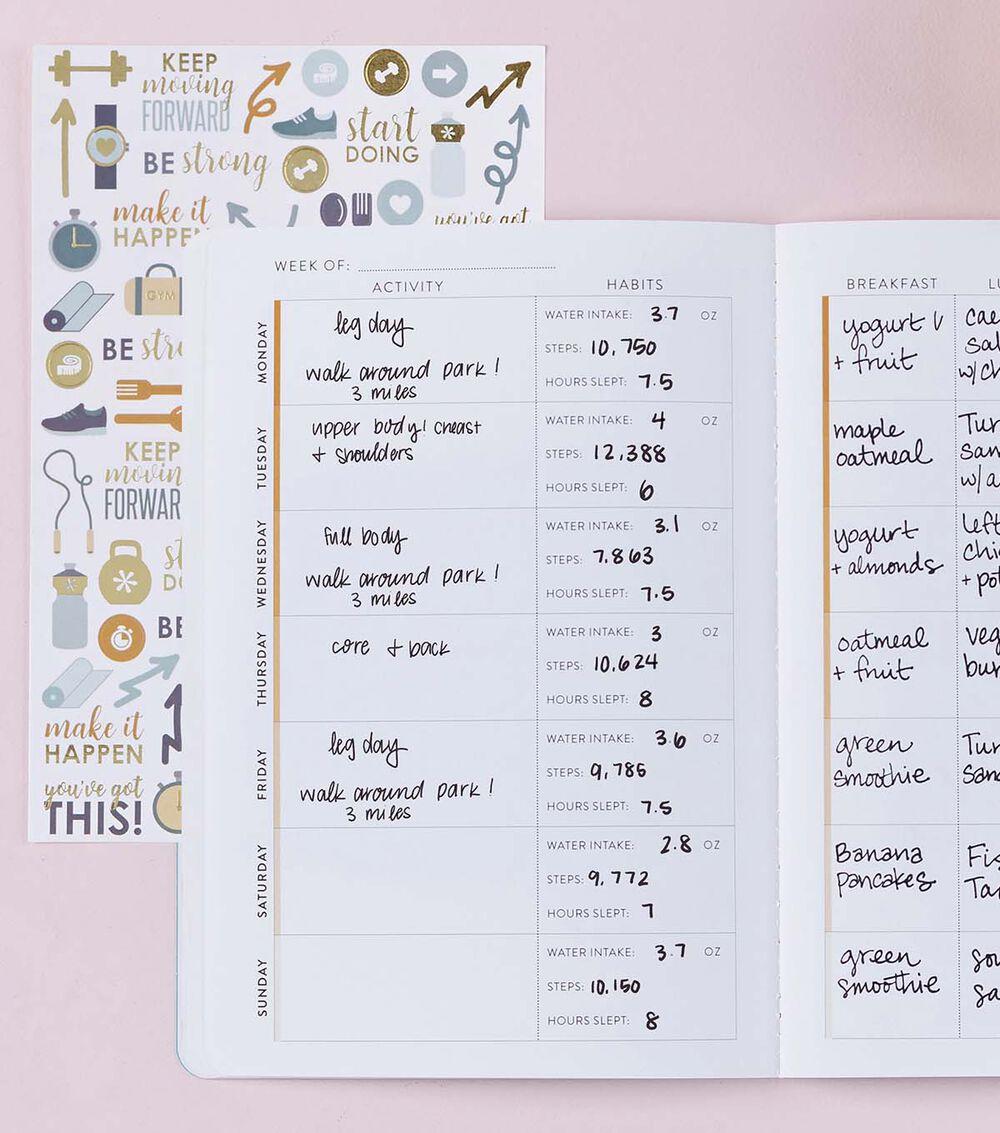 KEEP
moving
FORWARD
start
DOING
BE strong
make it
HAPPEN
you've got
GYM
BE
KEEP
FORWAR
BE
make it
HAPPEN
you've got
THIS!
WEEK OF:
ACTIVITY
HABITS
MONDAY
leg day
walk around park!
3 miles
WATER INTAKE: 3.7 OZ
STEPS: 10,750
HOURS SLEPT: 7.5
TUESDAY
upper body! cheast
+ shoulders
WATER INTAKE: 4 OZ
STEPS: 12,388
HOURS SLEPT: 6
WEDNESDAY
full body
walk around park!
3 miles
WATER INTAKE: 3.1 OZ
STEPS: 7,863
HOURS SLEPT: 7.5
THURSDAY
core + back
WATER INTAKE: 3 OZ
STEPS: 10,624
HOURS SLEPT: 8
FRIDAY
leg day
walk around park!
3 miles
WATER INTAKE: 3.6 OZ
STEPS: 9,785
HOURS SLEPT: 7.5
SATURDAY
WATER INTAKE: 2.8 OZ
STEPS: 9,772
HOURS SLEPT: 7
SUNDAY
WATER INTAKE: 3.7 OZ
STEPS: 10,150
HOURS SLEPT: 8
BREAKFAST
yogurt
+ fruit
w/
maple
oatmeal
w/a
yogurt
+ almonds
oatmeal
+ fruit
green
smoothie
Banana
pancakes
green
smoothie